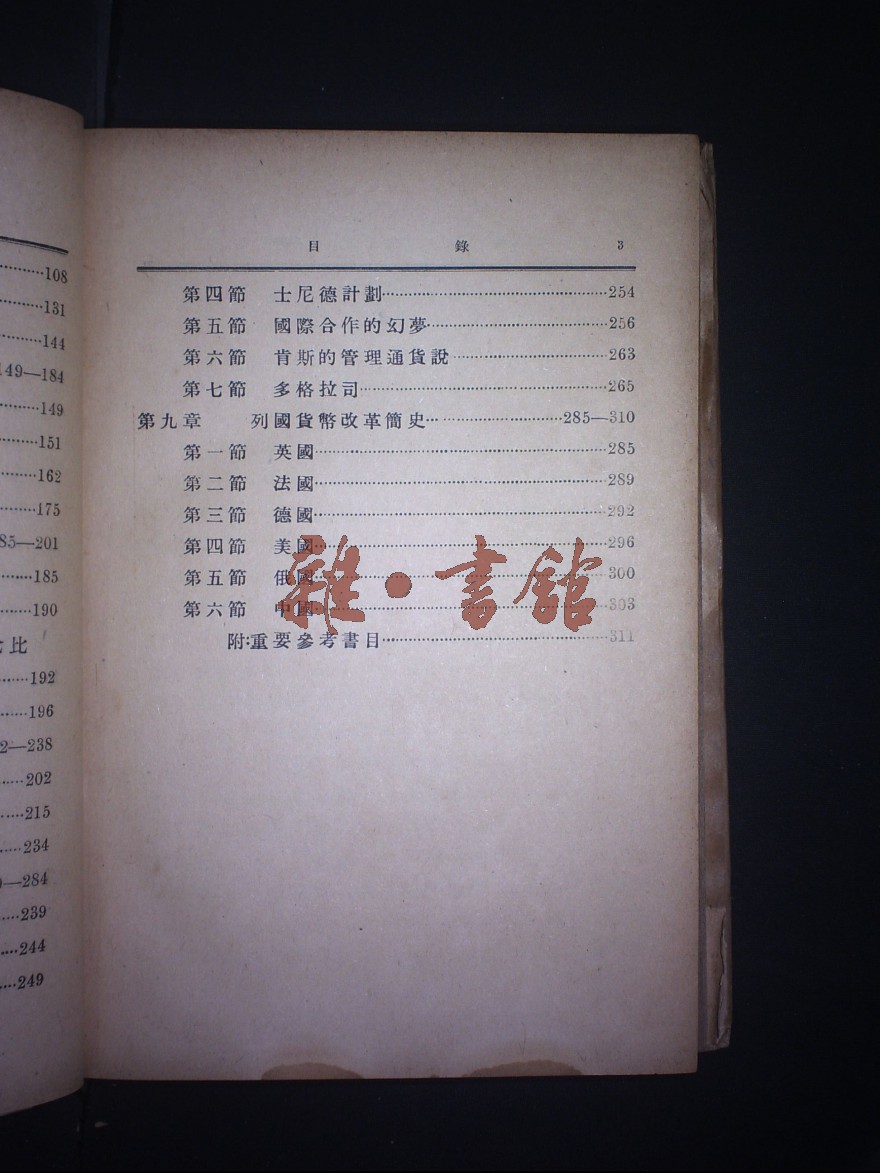 108
131
144
149—184
149
151
162
175
85—201
185
190
比
192
196
2—238
202
215
234
—284
239
244
249
目 錄 3
第四節 士尼德計劃……254
第五節 國際合作的幻夢……256
第六節 肯斯的管理通貨說……263
第七節 多格拉司……265
第九章 列國貨幣改革簡史……285—310
第一節 英國……285
第二節 法國……289
第三節 德國……292
第四節 美國……296
第五節 俄國……300
第六節 中國……303
附:重要參考書目……311
雜·書館